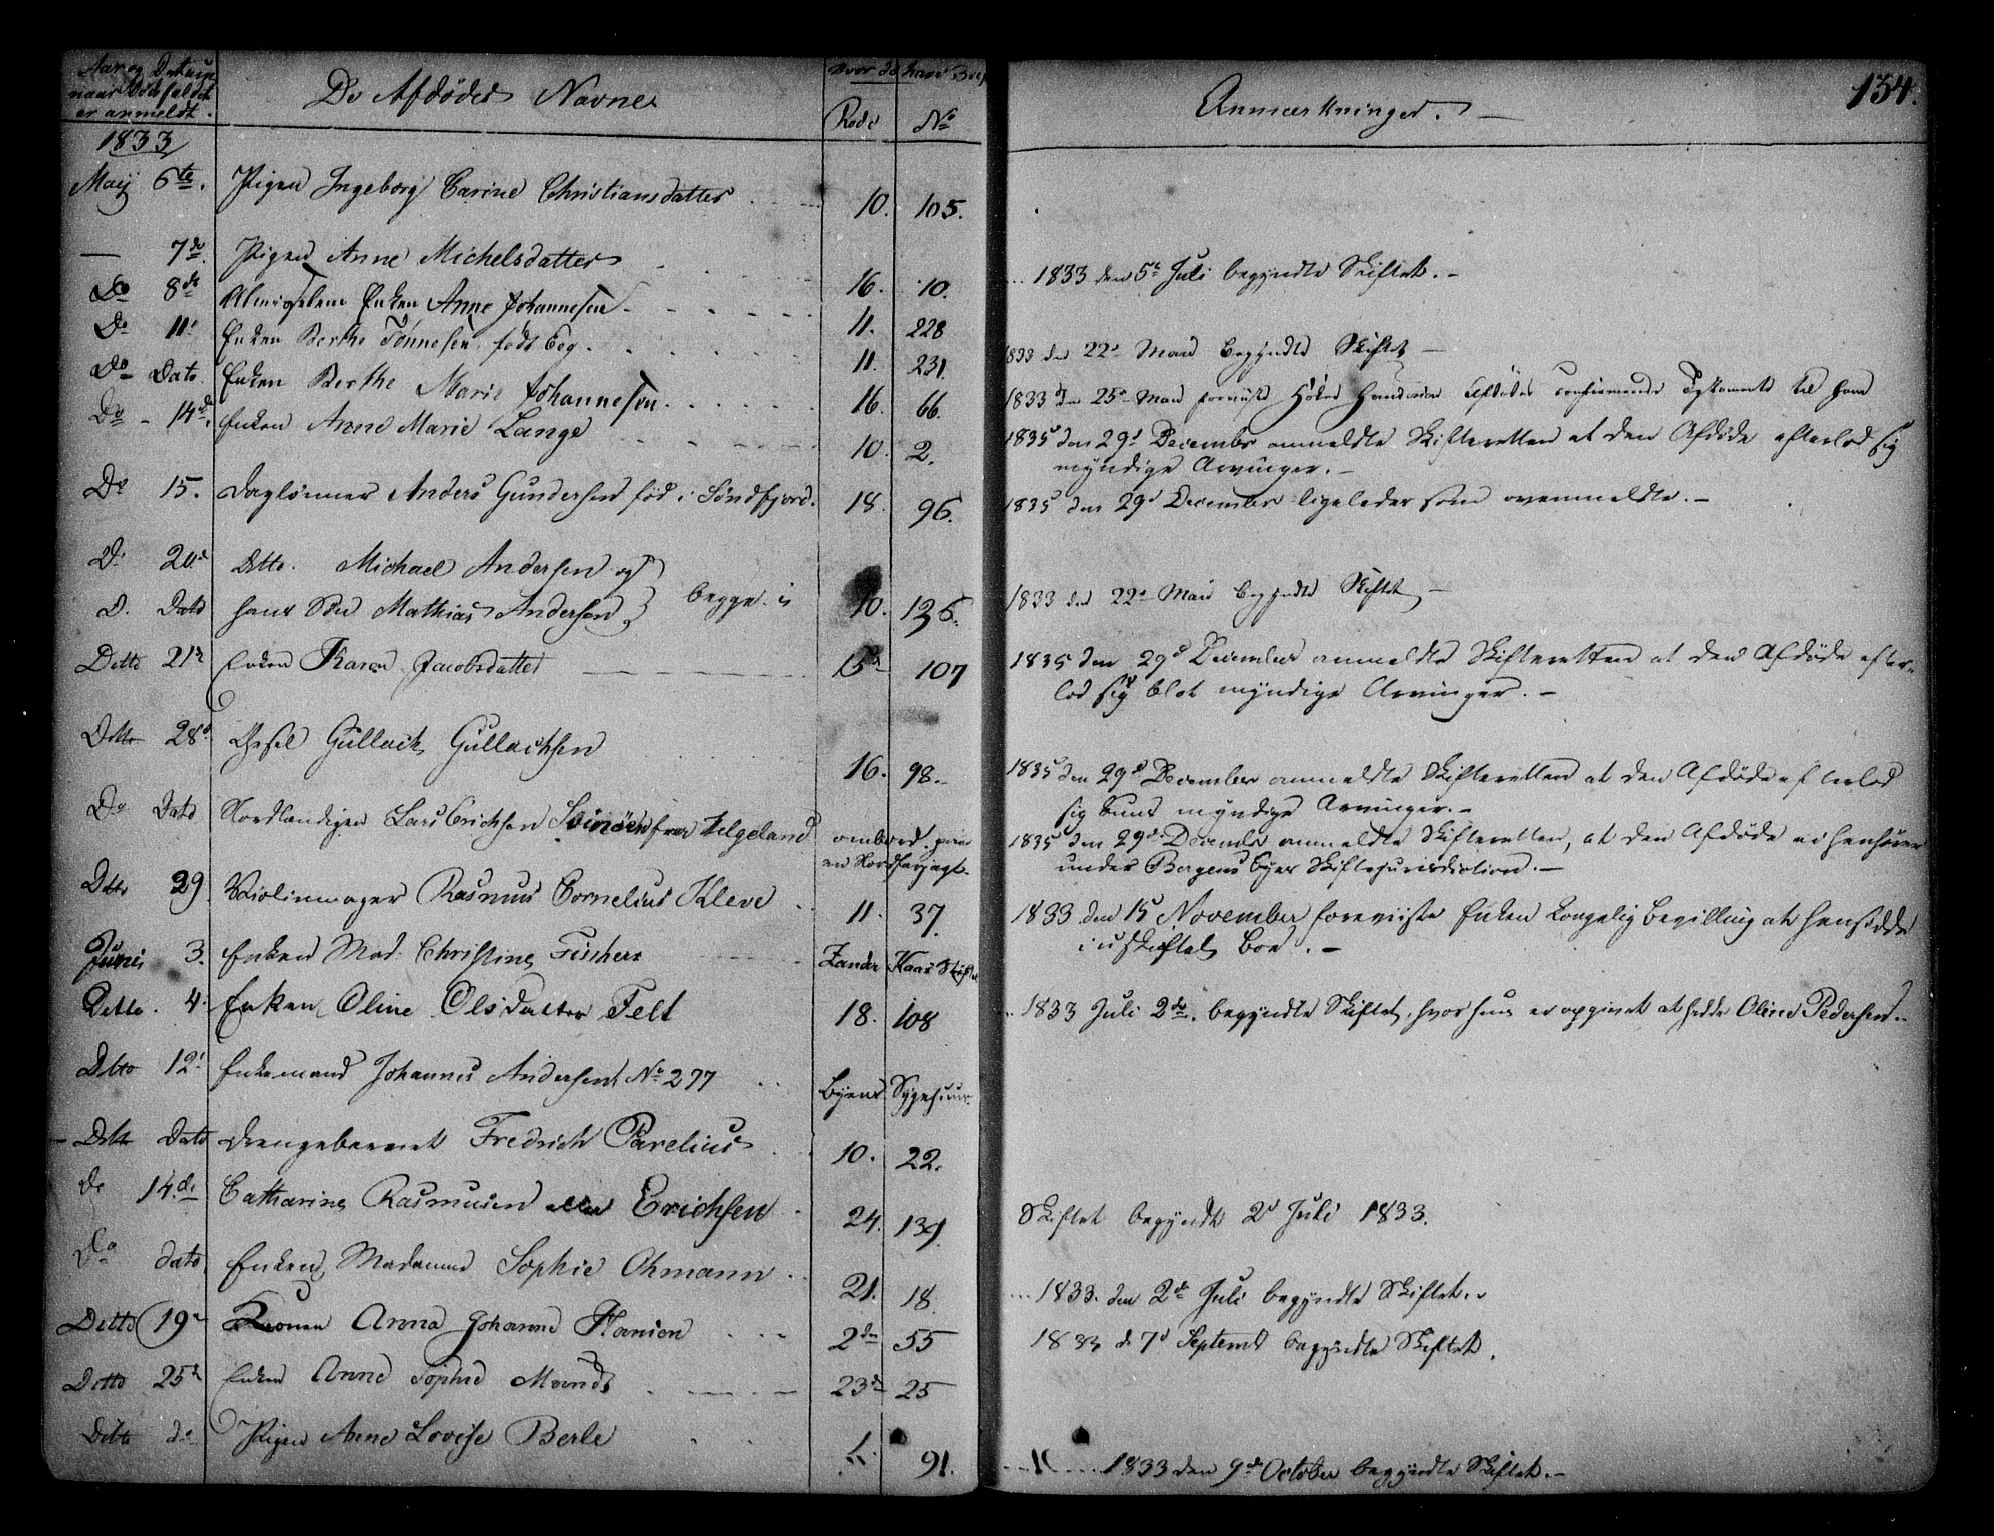 Aar og Datum
naar Dødsfaldet
er anmeldt.
De Afdødes Navne
hvor de have Boet
Rode No
Anmærkninger.
134.
1833
Maij 6te. Pigen Ingeborg Carine Christiansdatter 10. 105.
— 7de. Pigen Anne Michelsdatter 16. 10. 1833 den 5te Juli begyndte Skiftet.
Do 8de Enken Anne Johannesen 11. 228
Do 11te Enken Berthe Tønnesen, født Eeg. 11. 231. 1833 den 22de Maii begyndte Skiftet
Do Dato. Enken Berthe Marie Johannesen 16. 66. 1833 den 25de Maii til ham
Do 14de. Enken Anne Marie Lange 10. 2. 1835 den 29de December anmeldte Skifteretten at den Afdøde efterlod sig
myndige Arvinger.
Do 15. Daglønner Anders Gundersen fød i Søndfjord. 18. 96. 1835 den 29de December ligeledes som ovenmeldte.
Do 20de Ditto. Michael Andersen og
Do Dato hans Søn Mathias Andersen begge i 10. 136. 1833 den 22de Maii begyndte Skiftet
Ditto 21de Enken Karen Jacobsdatter 15de 107 1835 den 29de December anmeldte Skifteretten at den Afdøde efter-
lod sig blot myndige Arvinger.
Ditto 28de Gullack Gullachsen 16. 98. 1835 den 29de December anmeldte Skifteretten at den Afdøde efterlod
sig kuns myndige Arvinger.
Do Dato Nordlændingen Lars Erichsen fra Helgeland ombord paa
en Nordfarjagt. 1835 den 29de December anmeldte Skifteretten, at den Afdøde ei henhører
under Bergens Byes Skiftejurisdiction.
Ditto 29. Violinmager Rasmus Cornelius Kleve 11. 37. 1833 den 15 November foreviiste Enken Kongelig Bevilling at hensidde
i uskiftet Boe.
Juni 3. Enken Mad. Christine Fischer Zander Kaaes Stiftelse
Ditto. 4. Enken Oline Olsdatter Felt 18. 108 1833 Juli 2de. begyndte Skiftet, hvor hun er opgivet at hedde Oline Pedersen.
Ditto 12te Enkemand Johannes Andersen No 277 Byens Sygehuus.
Ditto Dato Drengebarnet Fredrich Parelius 10. 22.
Do 14.de Catharine Rasmusen eller Erichsen 24. 139 Skiftet begyndt 2d Juli 1833.
Do dato Enken, Madame Sophie Ohmann 21. 18. 1833. den 2de Juli begyndte Skiftet.
Ditto 19de Konen Anna Johanne Hansen 2de 55 1833 d 7d Septemb begyndte Skiftet.
Ditto 25de Enken Anne Sophie Mands 23de 25
Ditto do Pigen Anne Lovise Berle 1. 91. 1833 den 9de October begyndte Skiftet.